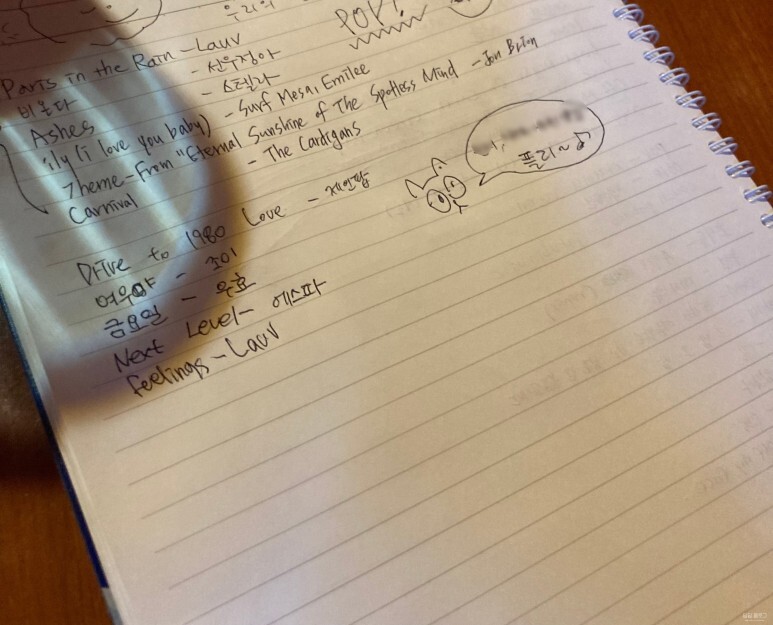 우리의
POP!
Paris in the Rain - Lauv
비온다 - 선우정아
Ashes - 스텔라
ily (i love you baby) - Surf Mesa, Emilee
Theme-From "Eternal Sunshine of The Spotless Mind - Jon Brion
Carnival - The Cardigans
플리~♪
Drive to 1980 Love - 제인팝
여우야 - 조이
금요일 - 우효
Next Level - 에스파
feelings - Lauv